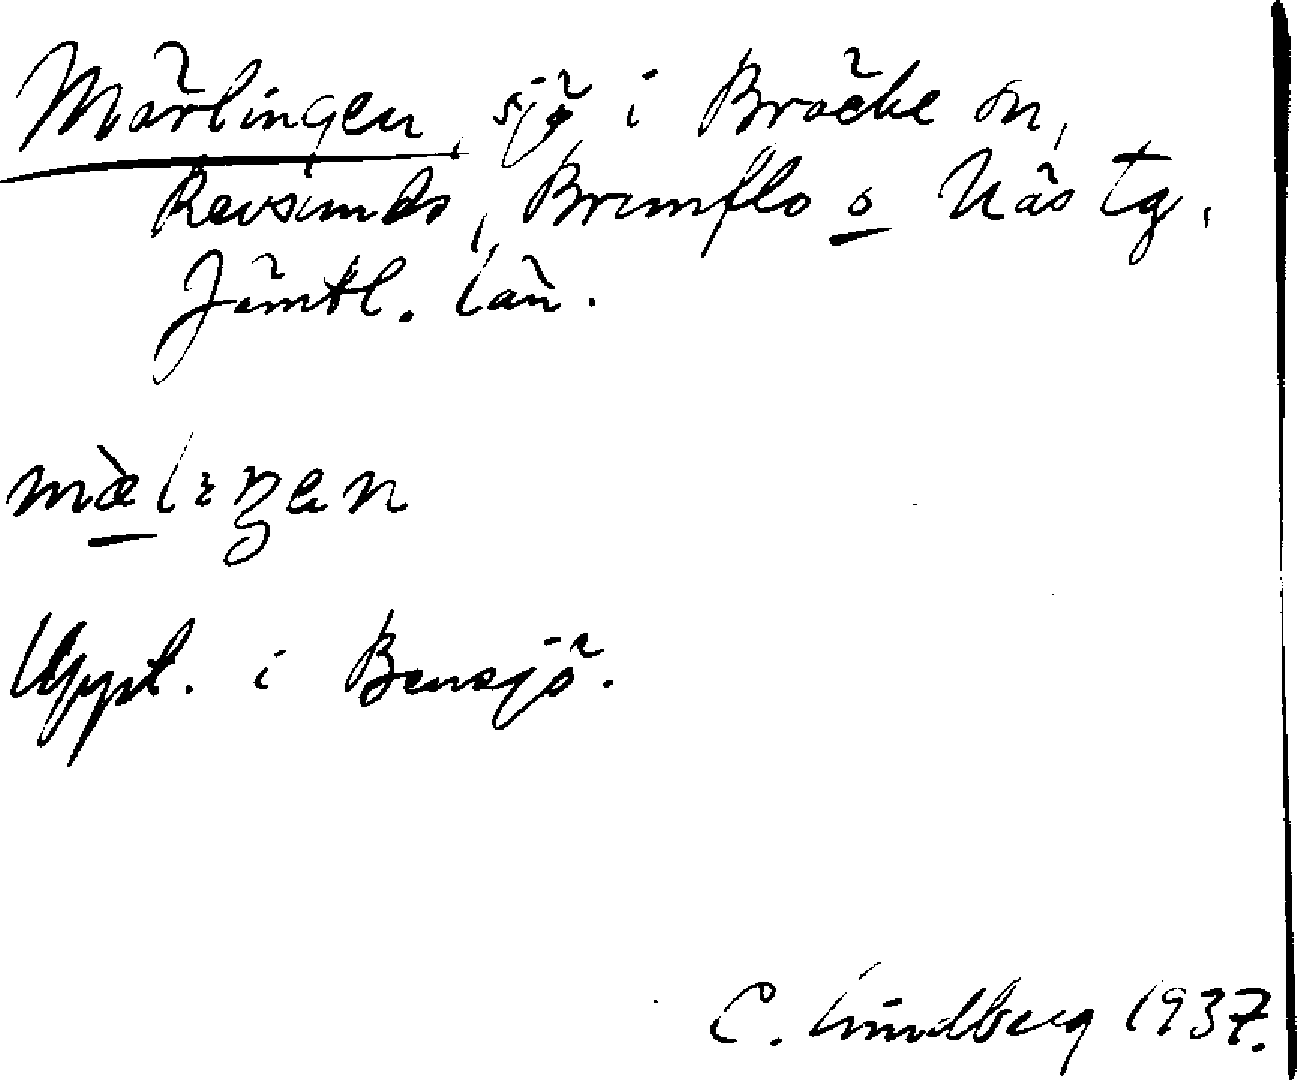 Märlingen, sjö i Bräcke sn,
Revsunds, Brunflo o Näs tg,
Jämtl. län.
mæ̀lıŋen
Uppt. i Bensjö.
C. Lindberg 1937.